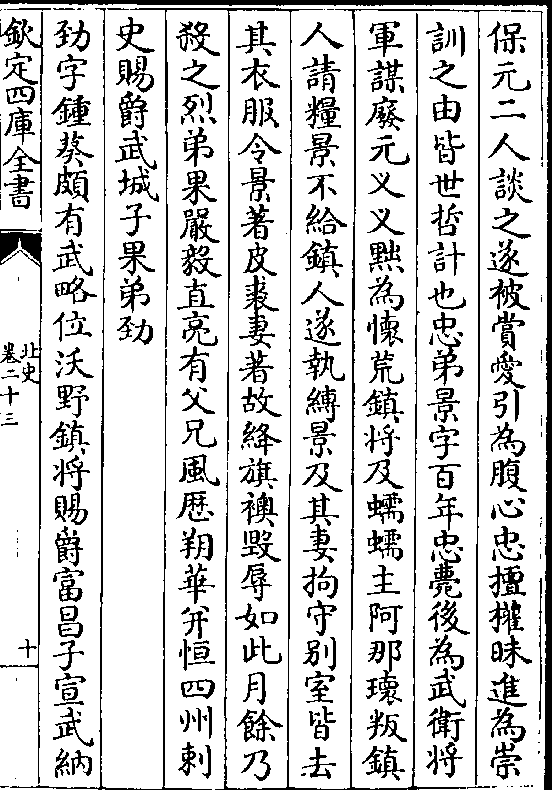 保元二人談之遂被賞愛引為腹心忠擅權昧進為崇
訓之由皆世哲計也忠弟景字百年忠薨後為武衛將
軍謀廢元义义黜為懷荒鎮將及蠕蠕主阿那瓌叛鎮
人請糧景不給鎮人遂執縛景及其妻拘守别室皆去
其衣服令景著皮裘妻著故絳旗襖毁辱如此月餘乃
殺之烈弟果嚴毅直亮有父兄風歴朔華并恒四州刺
史賜爵武城子果弟勁
勁字鍾葵頗有武略位沃野鎮將賜爵富昌子宣武納
欽定四庫全書
北史
卷二十三
十